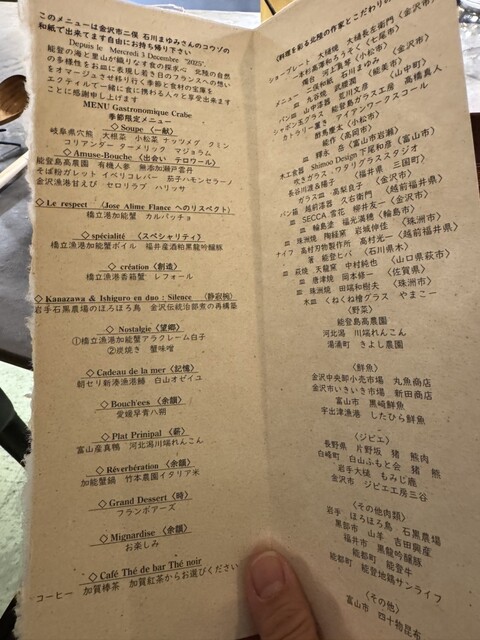 このメニューは金沢市二俣 石川まゆみさんのコウゾの
和紙で出来てます自由にお持ち帰り下さい
Depuis le Mercredi 3 Decembre "2025"
能登の海と里山が織りなす食の探求心 北陸の自然
の多様性をお皿に表現し若き日のフランスへの想い
をオマージュさせ移り行く季節と食材の宝庫を
エラティルで一緒に食に携わる人々と享受出来ます
ことに感謝申し上げます
MENU Gastronomique Crabe
季節限定メニュー
◇ Soupe 〈一献〉
岐阜県穴熊 大根菜 小松菜 ナッツメグ クミン
コリアンダー ターメリック マジョラム
◇ Amuse-Bouche 〈出会い テロワール〉
能登島高農園 有機人参 無添加瀬戸雲丹
そば粉ガレット イベリコレバー 茄子ハモンセラーノ
金沢漁港甘えび セロリラブ ハリッサ
◇ Le respect 〈Jose Alime Flance へのリスペクト〉
橋立港加能蟹 カルパッチョ
◇ spécialité 〈スペシャリティ〉
橋立漁港加能蟹ボイル 福井産酒粕黒龍吟醸豚
◇ création〈創造〉
橋立漁港香箱蟹 レフォール
◇ Kanazawa & Ishiguro en duo : Silence 〈静寂椀〉
岩手石黒農場のほろほろ鳥 金沢伝統治部煮の再構築
◇ Nostalgie 〈望郷〉
①橋立漁港加能蟹アラクレーム白子
②炭焼き 蟹味噌
◇ Cadeau de la mer 〈記憶〉
朝セリ新湊漁港鰆 白山オゼイユ
◇ Bouch'ees 〈余韻〉
愛媛早青八朔
◇ Plat Prinipal 〈薪〉
富山産真鴨 河北潟川端れんこん
◇ Réverbération 〈余韻〉
加能蟹鍋 竹本農園イタリア米
◇ Grand Dessert 〈時〉
フランボアーズ
◇ Mignardise 〈余韻〉
お楽しみ
◇ Café Thé de bar Thé noir
コーヒー 加賀棒茶 加賀紅茶からお選びください
〈料理を彩る北陸の作家とこだわりの
ショープレート 大樋焼 大樋長左衛門(金沢市)
一本杉高澤ろうそく(七尾市)
燭台 河上隼誉(小松市)
メニュー 二俣和紙 石川まゆみ (金沢市)
皿 九谷焼 武腰潤 (能美市)
パン皿 山中漆器 荒川文彦 (山中町)
シャボン玉グラス 能登島ガラス工房 高橋真人
カトラリー置き アイアンワークスコール
酢馬慶太(小松市)
能作(高岡市)
皿 釋永 岳(富山市岩瀬)
木工食器 Shimoo Design 下尾和彦(富山市)
吹きガラス・ワタリグラススタジオ
長谷川渡&陽子 (福井県 三国町)
ガラス皿 高梨良子 (金沢市)
パン籠 越前漆器 久右衛門 (越前福井県)
皿 SECCA 雪花 柳井友一(金沢市)
皿 輪島塗 福光満穂 (輪島市)
皿 珠洲焼 陶輝窯 岩城伸佳 (珠洲市)
ナイフ 高村刃物製作所 高村光一(越前福井県)
箸 能登ヒバ(石川県木)
皿 萩焼 天龍窯 中村純也 (山口県萩市)
皿 唐津焼 岡本修一 (佐賀県)
皿 珠洲焼 田端和樹夫 (珠洲市)
木皿 くねくね檜グラス やまこー
〈野菜〉
能登島高農園
河北潟 川端れんこん
湯涌町 きよし農園
〈鮮魚〉
金沢中央卸小売市場 丸魚商店
金沢市いきいき市場 新田商店
富山市 黒崎鮮魚
宇出津漁港 したひら鮮魚
〈ジビエ〉
長野県 片野坂 猪 熊肉
白峰町 白山ふもと会 猪 熊
岩手大槌 もみじ鹿
金沢市 ジビエ工房三谷
〈その他肉類〉
岩手 ほろほろ鳥 石黒農場
黒部市 山羊 吉田興産
福井市 黒龍吟醸豚
能都町 能登牛
能都町 能登地鶏サンライフ
〈その他〉
富山市 四十物昆布